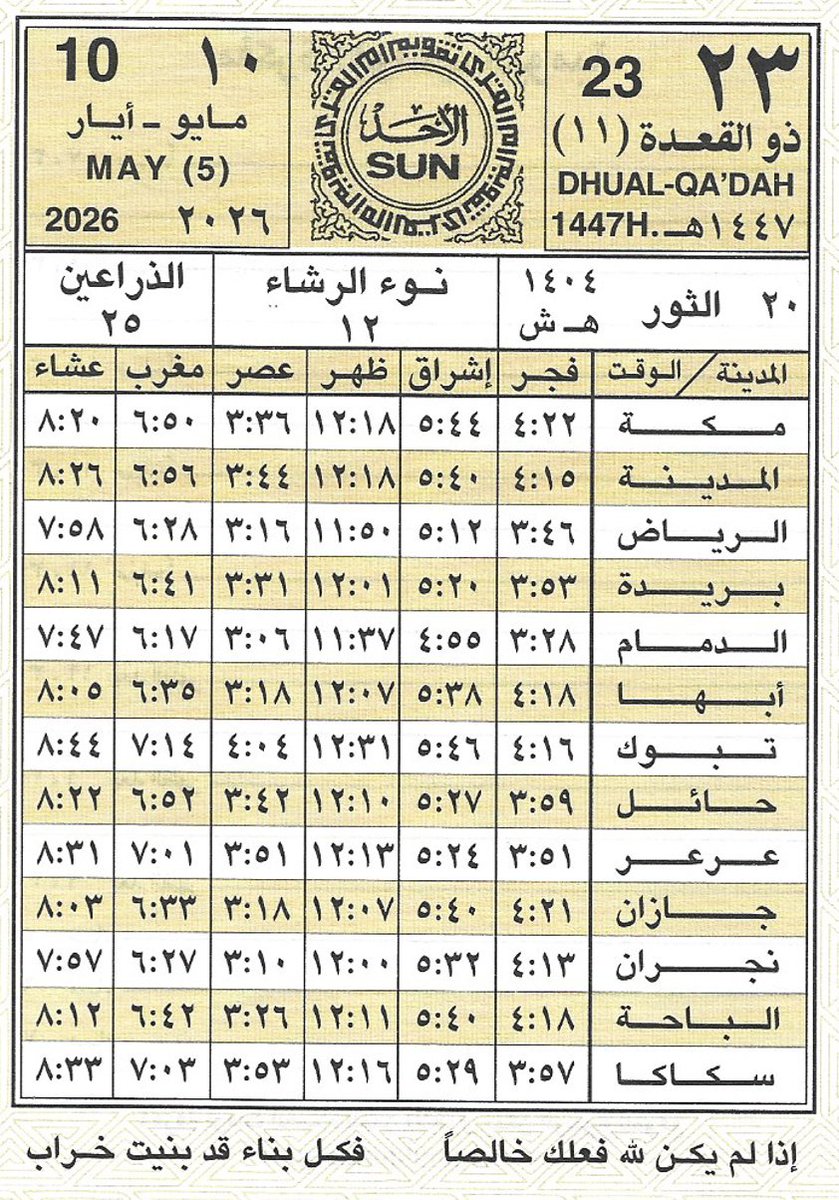 ٢٣ 23
ذو القعدة (١١)
DHUAL-QA'DAH
1447H. ١٤٤٧هـ
الأحد
SUN
١٠ 10
مايو - أيار
MAY (5)
2026 ٢٠٢٦
٢٠ الثور ١٤٠٤ هـ ش
نوء الرشاء ١٢
الذراعين ٢٥
المدينة / الوقت فجر إشراق ظهر عصر مغرب عشاء
مكة ٤:٢٢ ٥:٤٤ ١٢:١٨ ٣:٣٦ ٦:٥٠ ٨:٢٠
المدينة ٤:١٥ ٥:٤٠ ١٢:١٨ ٣:٤٤ ٦:٥٦ ٨:٢٦
الرياض ٣:٤٦ ٥:١٢ ١١:٥٠ ٣:١٦ ٦:٢٨ ٧:٥٨
بريدة ٣:٥٣ ٥:٢٠ ١٢:٠١ ٣:٣١ ٦:٤١ ٨:١١
الدمام ٣:٢٨ ٤:٥٥ ١١:٣٧ ٣:٠٦ ٦:١٧ ٧:٤٧
أبها ٤:١٨ ٥:٣٨ ١٢:٠٧ ٣:١٨ ٦:٣٥ ٨:٠٥
تبوك ٤:١٦ ٥:٤٦ ١٢:٣١ ٤:٠٤ ٧:١٤ ٨:٤٤
حائل ٣:٥٩ ٥:٢٧ ١٢:١٠ ٣:٤٢ ٦:٥٢ ٨:٢٢
عرعر ٣:٥١ ٥:٢٤ ١٢:١٣ ٣:٥١ ٧:٠١ ٨:٣١
جازان ٤:٢١ ٥:٤٠ ١٢:٠٧ ٣:١٨ ٦:٣٣ ٨:٠٣
نجران ٤:١٣ ٥:٣٢ ١٢:٠٠ ٣:١٠ ٦:٢٧ ٧:٥٧
الباحة ٤:١٨ ٥:٤٠ ١٢:١١ ٣:٢٦ ٦:٤٢ ٨:١٢
سكاكا ٣:٥٧ ٥:٢٩ ١٢:١٦ ٣:٥٣ ٧:٠٣ ٨:٣٣
إذا لم يكن لله فعلك خالصاً فكل بناء قد بنيت خراب